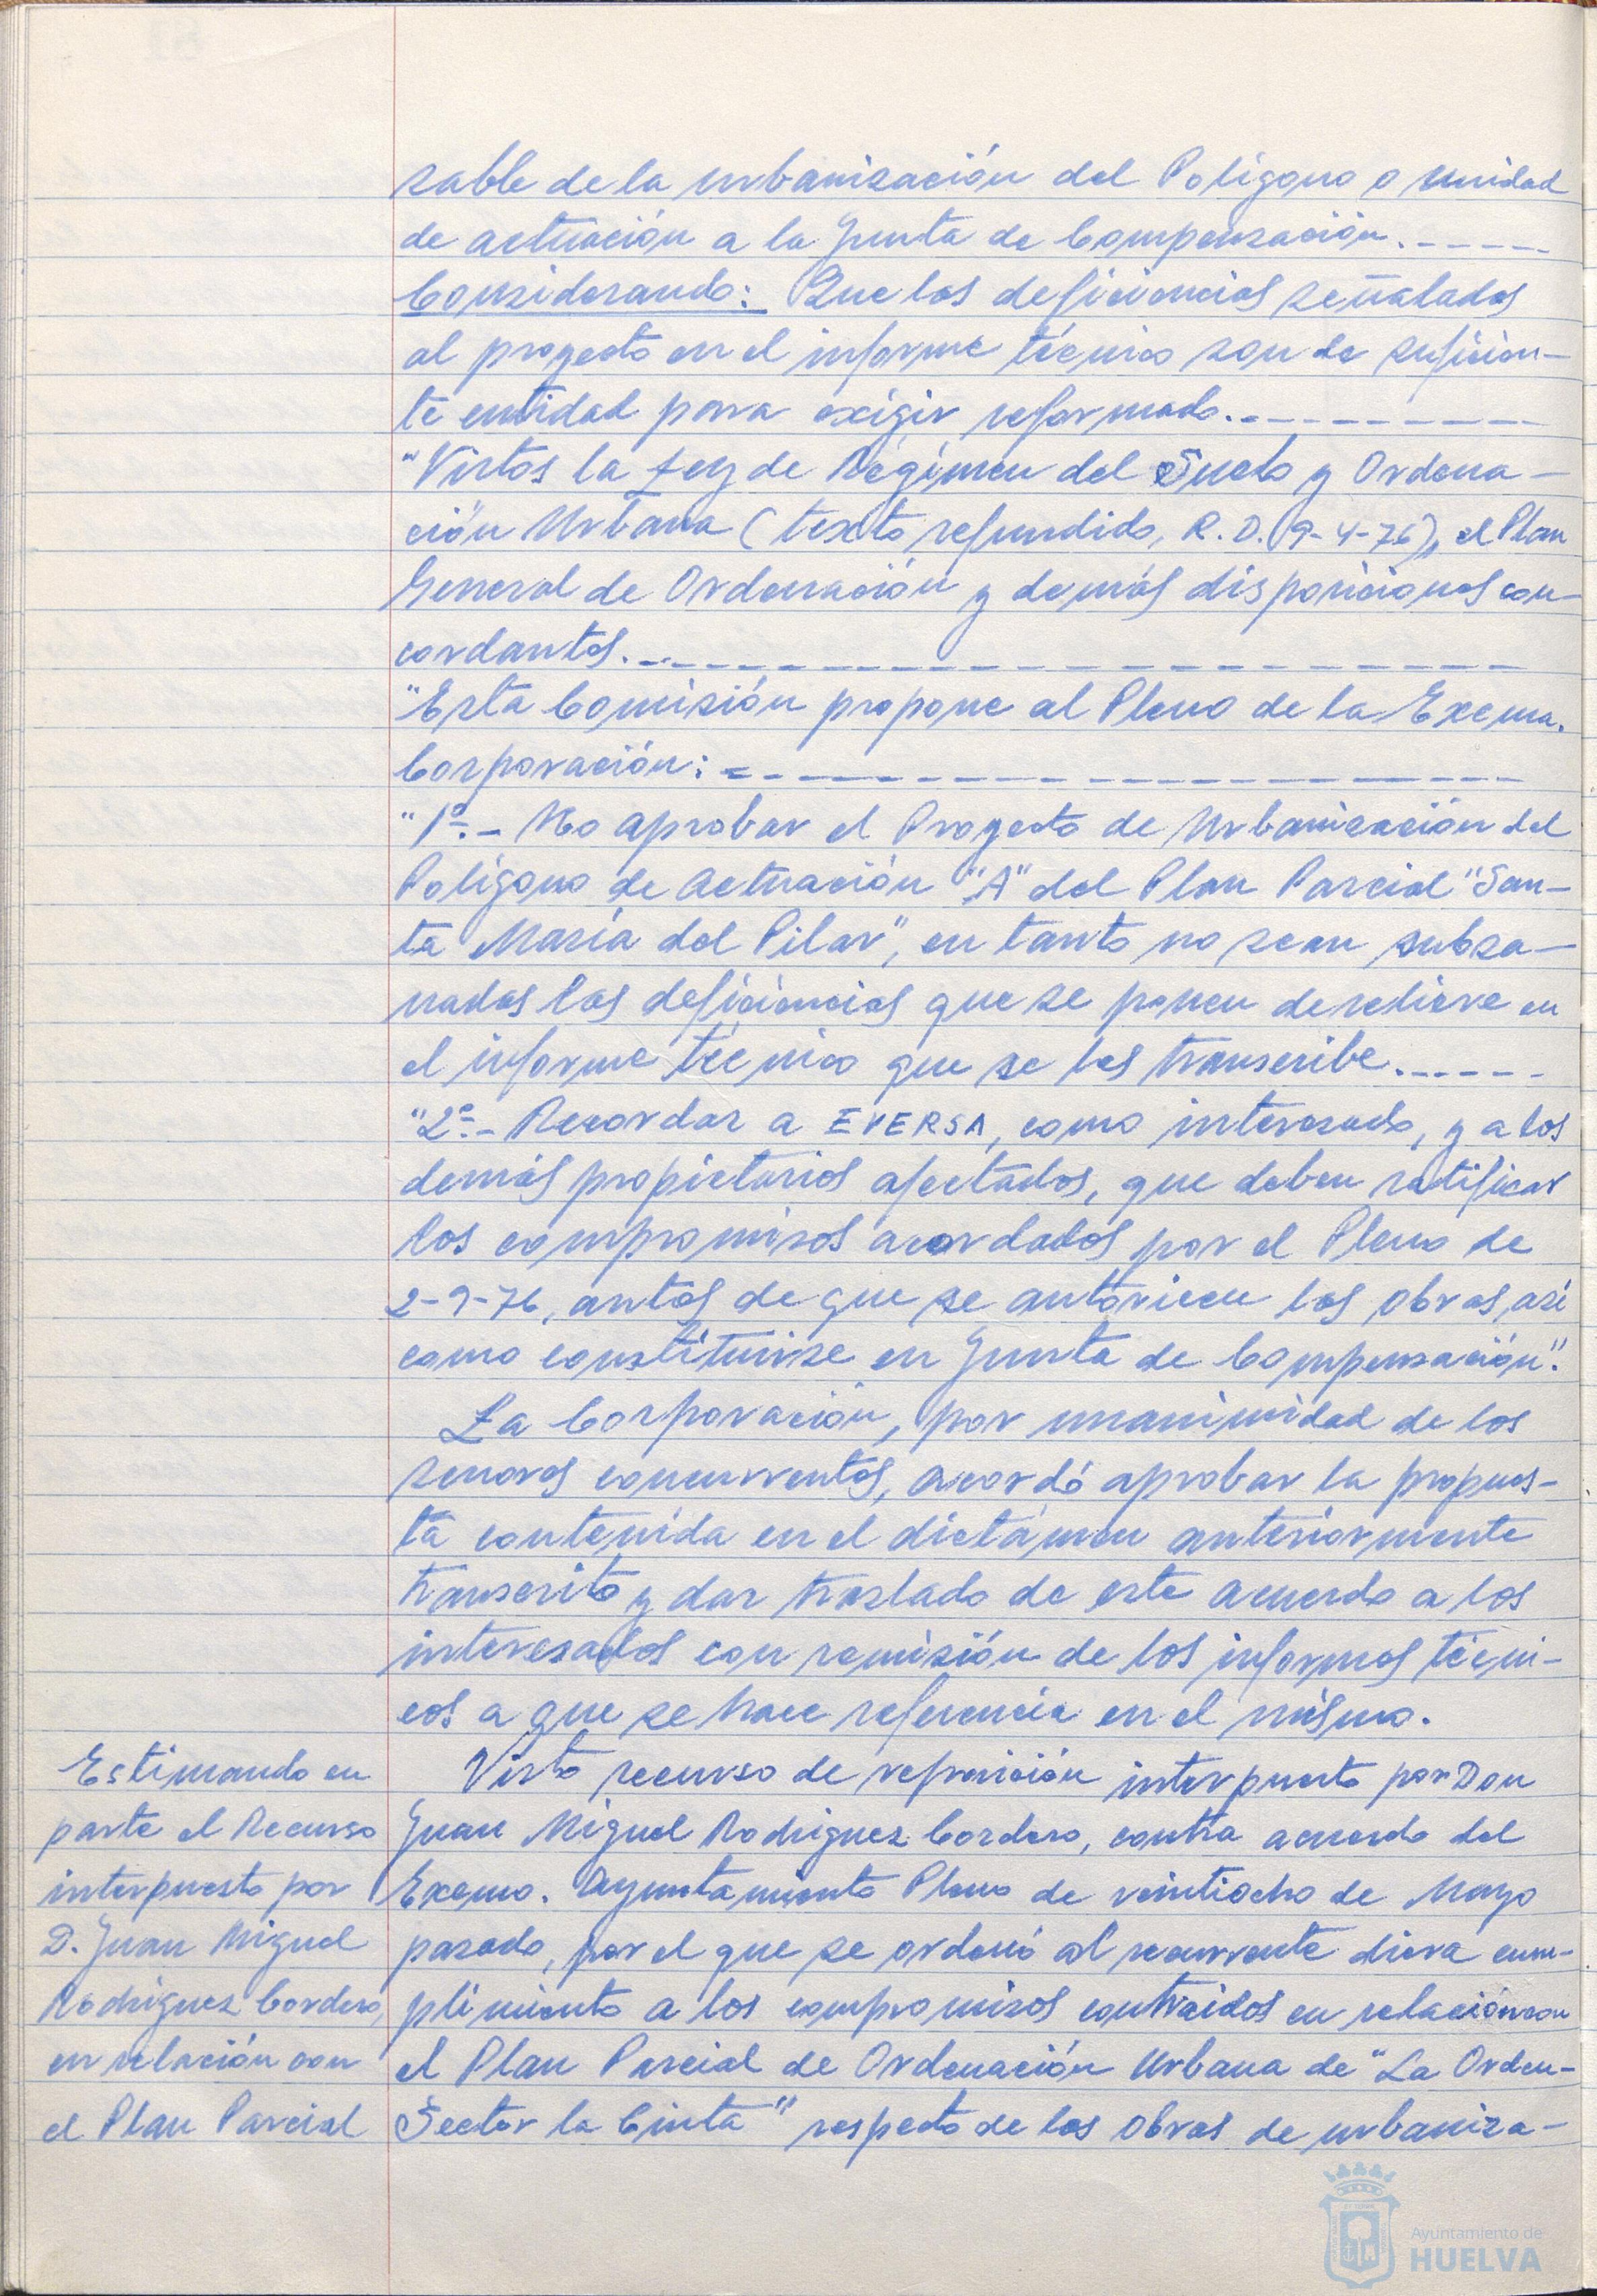 sable de la urbanización del Polígono o unidad
de actuación a la Junta de Compensación.-----
Considerando: Que las deficiencias señaladas
al proyecto en el informe técnico son de suficien-
te entidad para exigir reformado.---------
"Vistos la Ley de Régimen del Suelo y Ordena-
ción Urbana (texto refundido, R.D. 9-4-76), el Plan
General de Ordenación y demás disposiciones con-
cordantes.---------------
"Esta Comisión propone al Pleno de la Excma.
Corporación:--------------
"1º.- No aprobar el Proyecto de Urbanización del
Polígono de Actuación "A" del Plan Parcial "San-
ta María del Pilar", en tanto no sean subsa-
nadas las deficiencias que se ponen de relieve en
el informe técnico que se les transcribe.-----
"2º.- Recordar a EVERSA, como interesado, y a los
demás propietarios afectados, que deben ratificar
los compromisos acordados por el Pleno de
2-9-76, antes de que se autoricen las obras, así
como constituirse en Junta de Compensación".
La Corporación, por unanimidad de los
señores concurrentes, acordó aprobar la propues-
ta contenida en el dictámen anteriormente
transcrito y dar traslado de este acuerdo a los
interesados con remisión de los informes técni-
cos a que se hace referencia en el mismo.
Estimando en
parte el Recurso
interpuesto por
D. Juan Miguel
Rodriguez Cordero,
en relación con
el Plan Parcial
Visto recurso de reposición interpuesto por Don
Juan Miguel Rodriguez Cordero, contra acuerdo del
Excmo. Ayuntamiento Pleno de veintiocho de Mayo
pasado, por el que se ordenó al recurrente diera cum-
plimiento a los compromisos contraidos en relación con
el Plan Parcial de Ordenación Urbana de "La Orden-
Sector la Cinta" respecto de las obras de urbaniza-
Ayuntamiento de
HUELVA